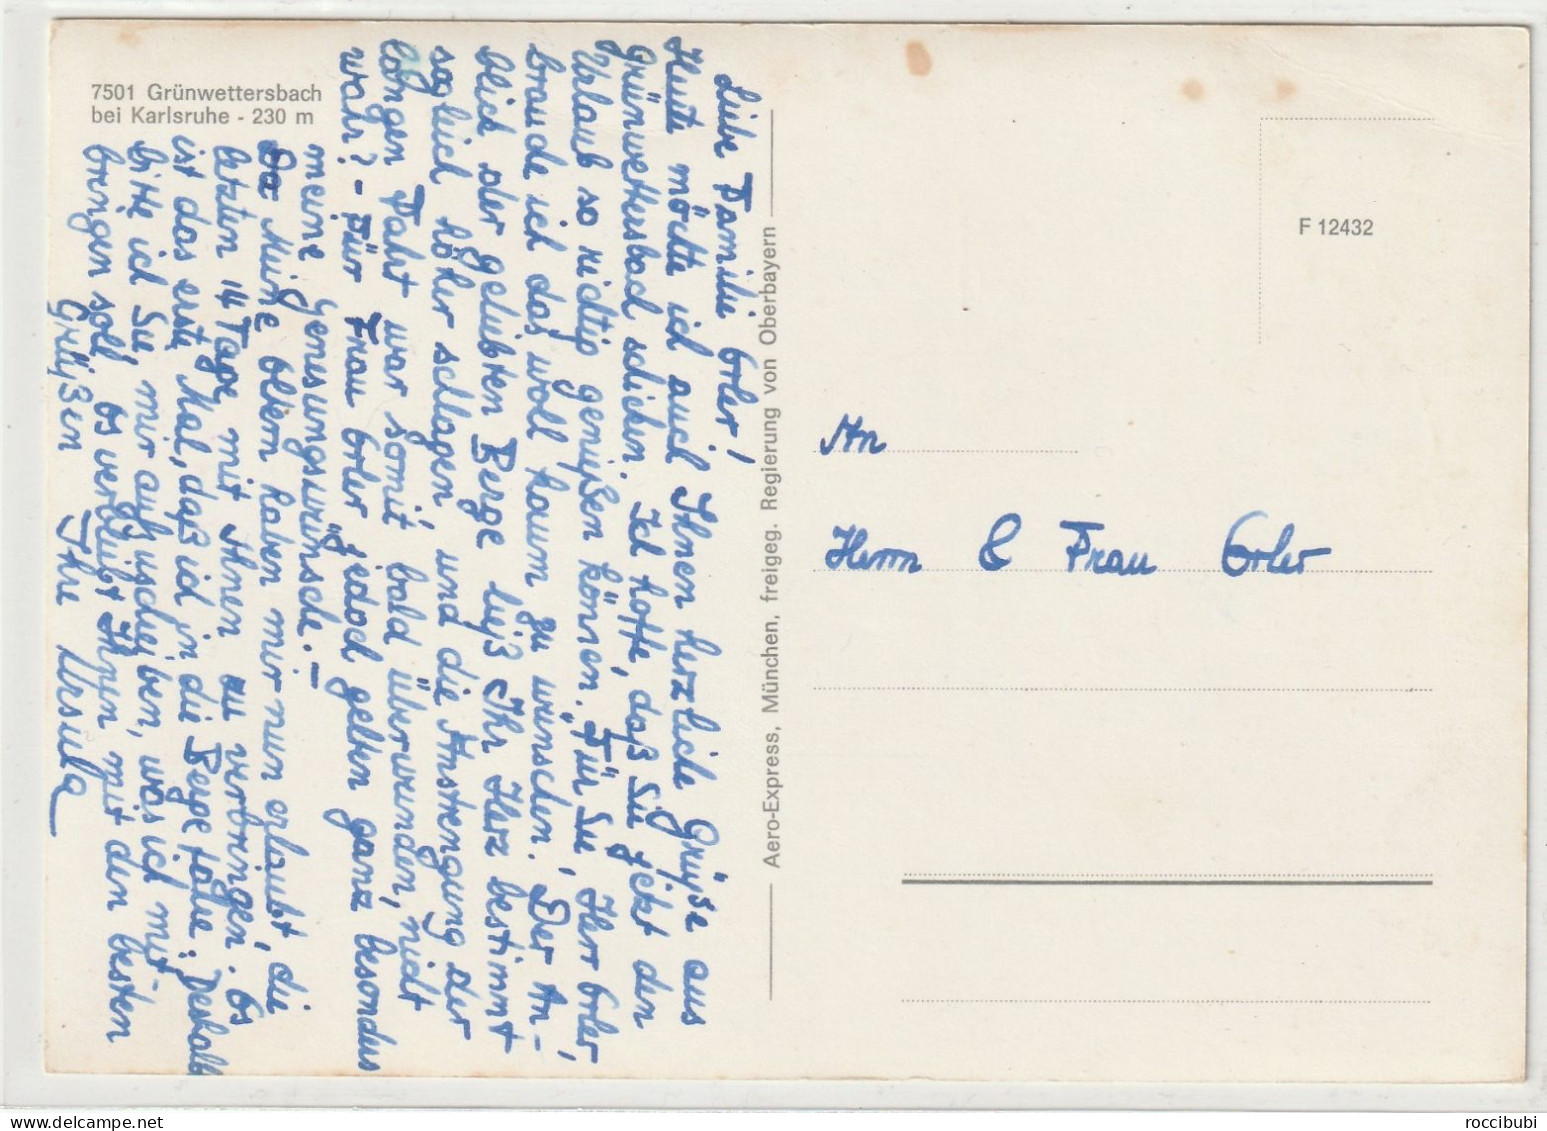 7501 Grünwettersbach
bei Karlsruhe - 230 m
Liebe Familie Erler!
Heute möchte ich auch Ihnen herzliche Grüße aus
Grünwettersbach schicken. Ich hoffe, daß Sie jetzt den
Urlaub so richtig genießen können. Für Sie, Herr Erler,
brauche ich das wohl kaum zu wünschen. Der An-
blick der geliebten Berge ließ Ihr Herz bestimmt
sogleich höher schlagen, und die Anstrengung der
langen Fahrt war somit bald überwunden, nicht
wahr? - Für Frau Erler jedoch gelten ganz besonders
meine Genesungswünsche. -
Meine Eltern haben mir nun erlaubt, die
letzten 14 Tage mit Ihnen zu verbringen. Es
ist das erste Mal, daß ich in die Berge fahre; deshalb
bitte ich Sie, mir aufzuschreiben, was ich mit-
bringen soll. Es verbleibt Ihnen mit den besten
Grüßen Ihre Ursula
Aero-Express, München, freigeg. Regierung von Oberbayern
F 12432
An
Herrn & Frau Erler
roccibubi